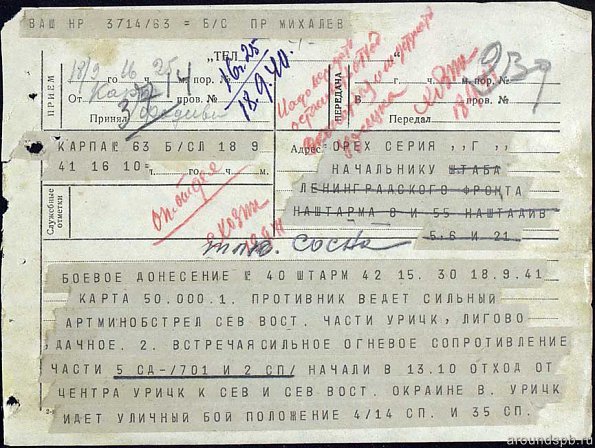 ВАШ НР 3714/63 = Б/С ПР МИХАЛЕВ
„ТЕЛ
ПРИЕМ
18/9 го 16 ч. 25 м. пор.
От Карп пров. №
Принял
16 25
18.9.40.
ПЕРЕДАЧА
го ч. м. пор. №
В пров. №
Передал
КАРПА 63 Б/СЛ 18 9
41 16 10 =
го ч. м.
Служебные отметки
Адрес:
ОРЕХ СЕРИЯ ,,Г ,,
НАЧАЛЬНИКУ ШТАБА
ЛЕНИНГРАДСКОГО ФРОНТА
НАШТАРМА 8 И 55 НАШТАДИВ
5.6 И 21
СОСНА
БОЕВОЕ ДОНЕСЕНИЕ № 40 ШТАРМ 42 15. 30 18.9.41
КАРТА 50.000.1. ПРОТИВНИК ВЕДЕТ СИЛЬНЫЙ
АРТМИНОБСТРЕЛ СЕВ ВОСТ. ЧАСТИ УРИЦК, ЛИГОВО
ДАЧНОЕ. 2. ВСТРЕЧАЯ СИЛЬНОЕ ОГНЕВОЕ СОПРОТИВЛЕНИЕ
ЧАСТИ 5 СД-/701 И 2 СП/ НАЧАЛИ В 13.10 ОТХОД ОТ
ЦЕНТРА УРИЦК К СЕВ И СЕВ ВОСТ. ОКРАИНЕ В. УРИЦК
ИДЕТ УЛИЧНЫЙ БОЙ ПОЛОЖЕНИЕ 4/14 СП. И 35 СП.
aroundspb.ru